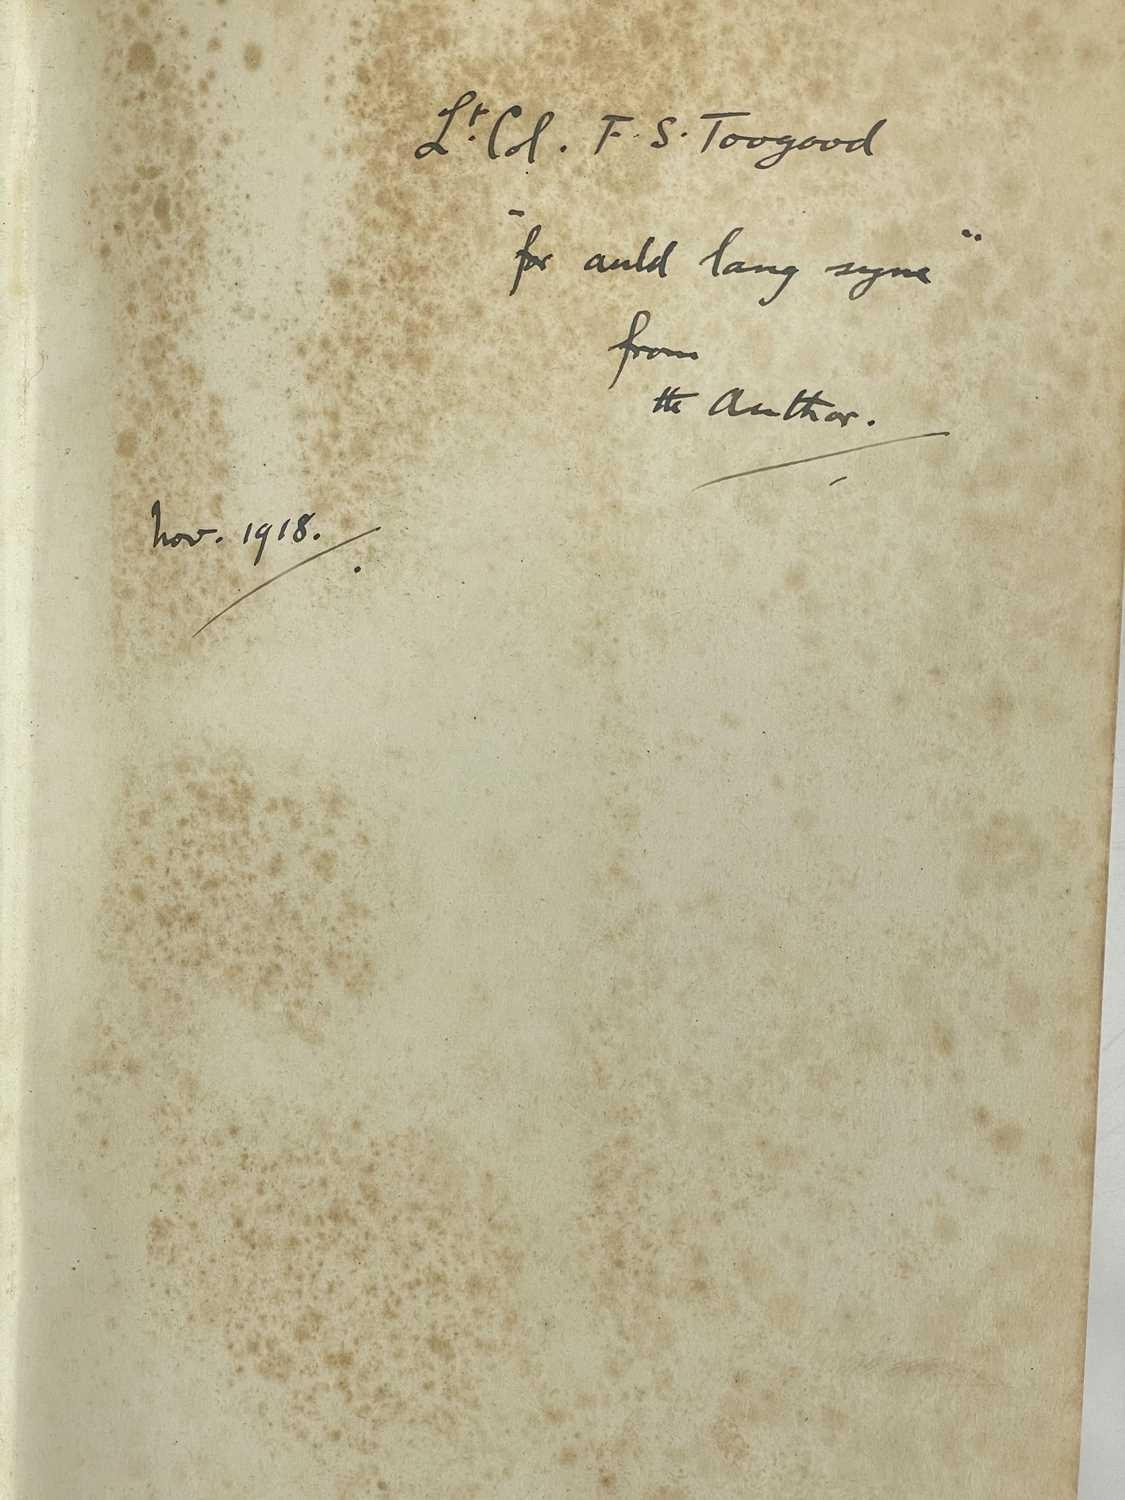 Lt. Col. F. S. Toogood
"for auld lang syne"
from
the Author.
Nov. 1918.